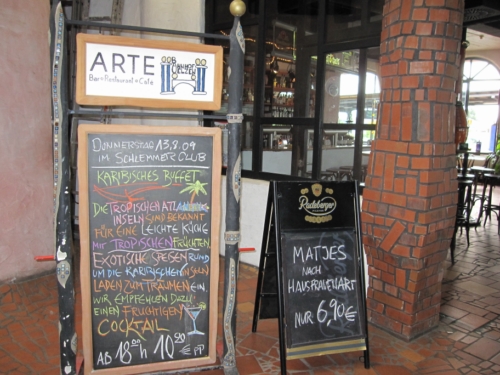 ARTE
Bar • Restaurant • Cafe
BAHNHOF
UELZEN
DONNERSTAG 13.8.09
IM SCHLEMMERCLUB
KARIBISCHES BUFFET
DIE TROPISCHEN ATLANTIK
INSELN SIND BEKANNT
FÜR EINE LEICHTE KÜCHE
MIT TROPISCHEN FRÜCHTEN.
EXOTISCHE SPEISEN RUND
UM DIE KARIBISCHEN INSELN
LADEN ZUM TRÄUMEN EIN.
WIR EMPFEHLEN DAZU
EINEN FRUCHTIGEN
COCKTAIL
AB 18:00h 10,90 € PP
Radeberger
PILSNER
MATJES
NACH
HAUSFRAUENART
NUR 6,90€